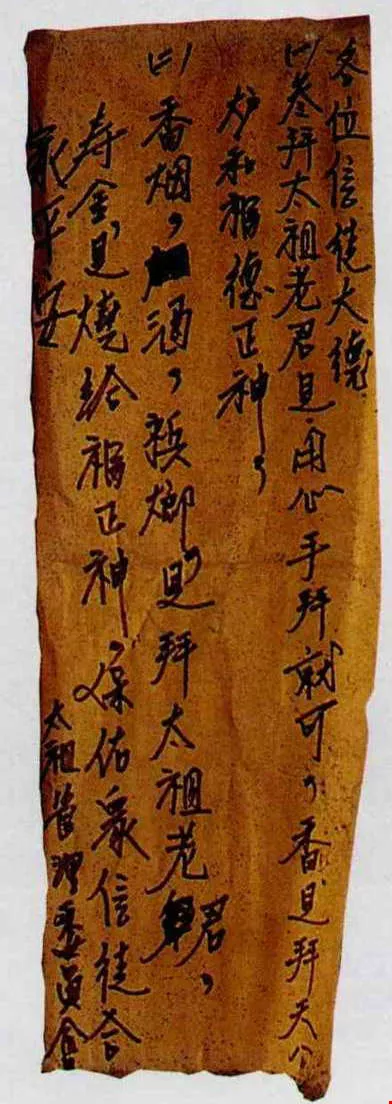 各位信徒大德
(一)奉拜太祖老君是用心手拜就可，香是拜天公
炉和福德正神，
(二)香烟，酒，梹榔，是拜太祖老君，
寿金是燒給福正神，保佑眾信徒合
家平安
太祖管理委員會